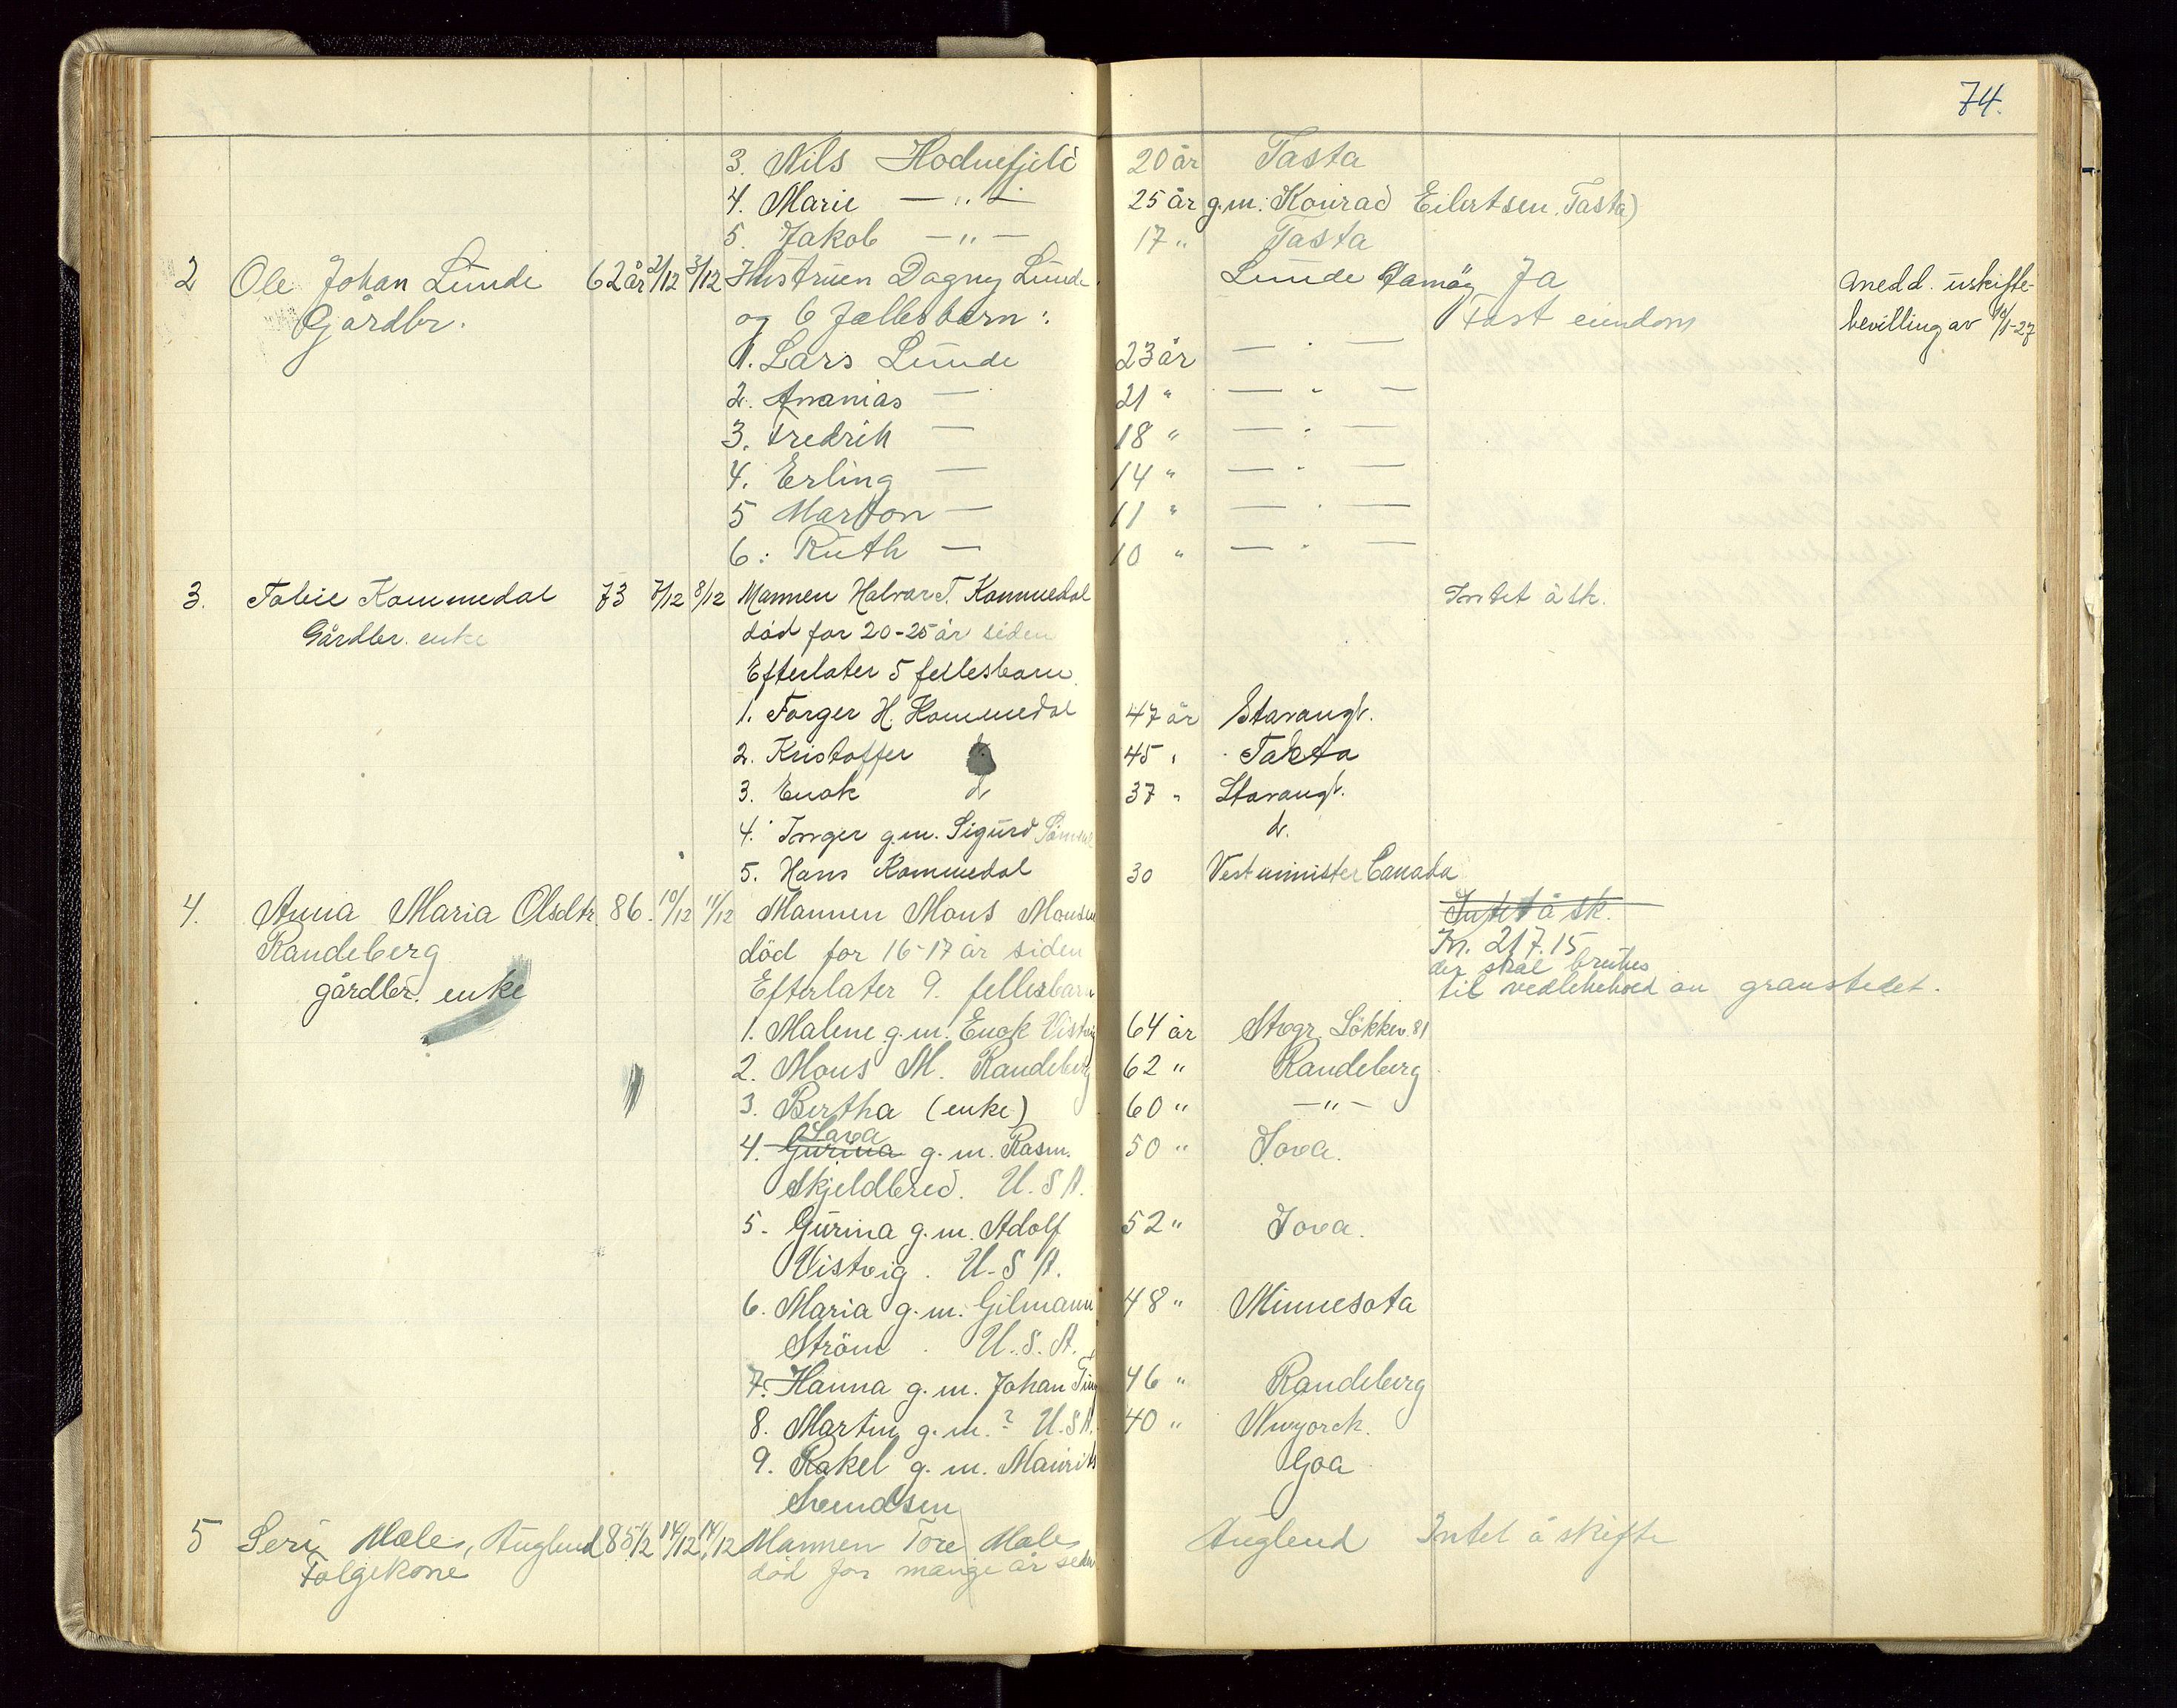 74.
3. Nils Hodnefjeld 20 år Tasta
4. Marie — " — 25 år g.m. Konrad Eilertsen, Tasta)
5. Jakob — " — 17 " Tasta
2 Ole Johan Lunde 62 år 2/12 3/12 Hustruen Dagny Lunde Lunde Ja
Gårdbr. og 6 fællesbarn: Fast eiendom
Medd. uskifte-
bevilling av
1. Lars Lunde 23 år — " —
2. Ananias — 21 " — " —
3. Fredrik — 18 " — " —
4. Erling — 14 " — " —
5 Marton — 11 " — " —
6. Ruth — 10 " — " —
3. Kommedal 73 7/12 8/12 Mannen Halvar T. Kommedal Intet å sk.
Gårdbr. enke död for 20-25 år siden
Efterlater 5 fellesbarn
1. Torger H. Kommedal 47 år Stavangr.
2. Kristoffer 45 " Tasta
3. Enok d. 37 " Stavangr.
4. Inger g.m. Sigurd d.
5. Hans Kommedal 30 Vestminister Canada
4. Anna Maria Olsdtr. 86. 10/12 11/12 Mannen Mons Monsen Intet å sk.
Randeberg död for 16-17 år siden Kr. 217.15
gårdbr. enke Efterlater 9. fellesbarn der skal brukes
til vedlikehold av gravstedet.
1. Malene g.m. Enok Vistvig 64 år Stvgr. Lökkev. 81
2. Mons M. Randeberg 62 " Randeberg
3. Bertha (enke) 60 " — " —
4. Gurina g.m. Rasm. 50 " Iova.
Skjeldbred. U.S.A.
5. Gurina g.m. Adolf 52 " Iova.
Vistvig. U.S.A.
6. Maria g.m. Gilmann 48 " Minnesota
Ström. U.S.A.
7. Hanna g.m. Johan 46 " Randeberg
8. Martin g.m. ? U.S.A. 40 " Nwyorck.
9. Rakel g.m. Maurits Goa
Svendsen
5 Seri Mæle, Auglend 85 1/2 14/12 14/12 Mannen Tore Mæle Auglend Intet å skifte
Folgekone död for mange år siden